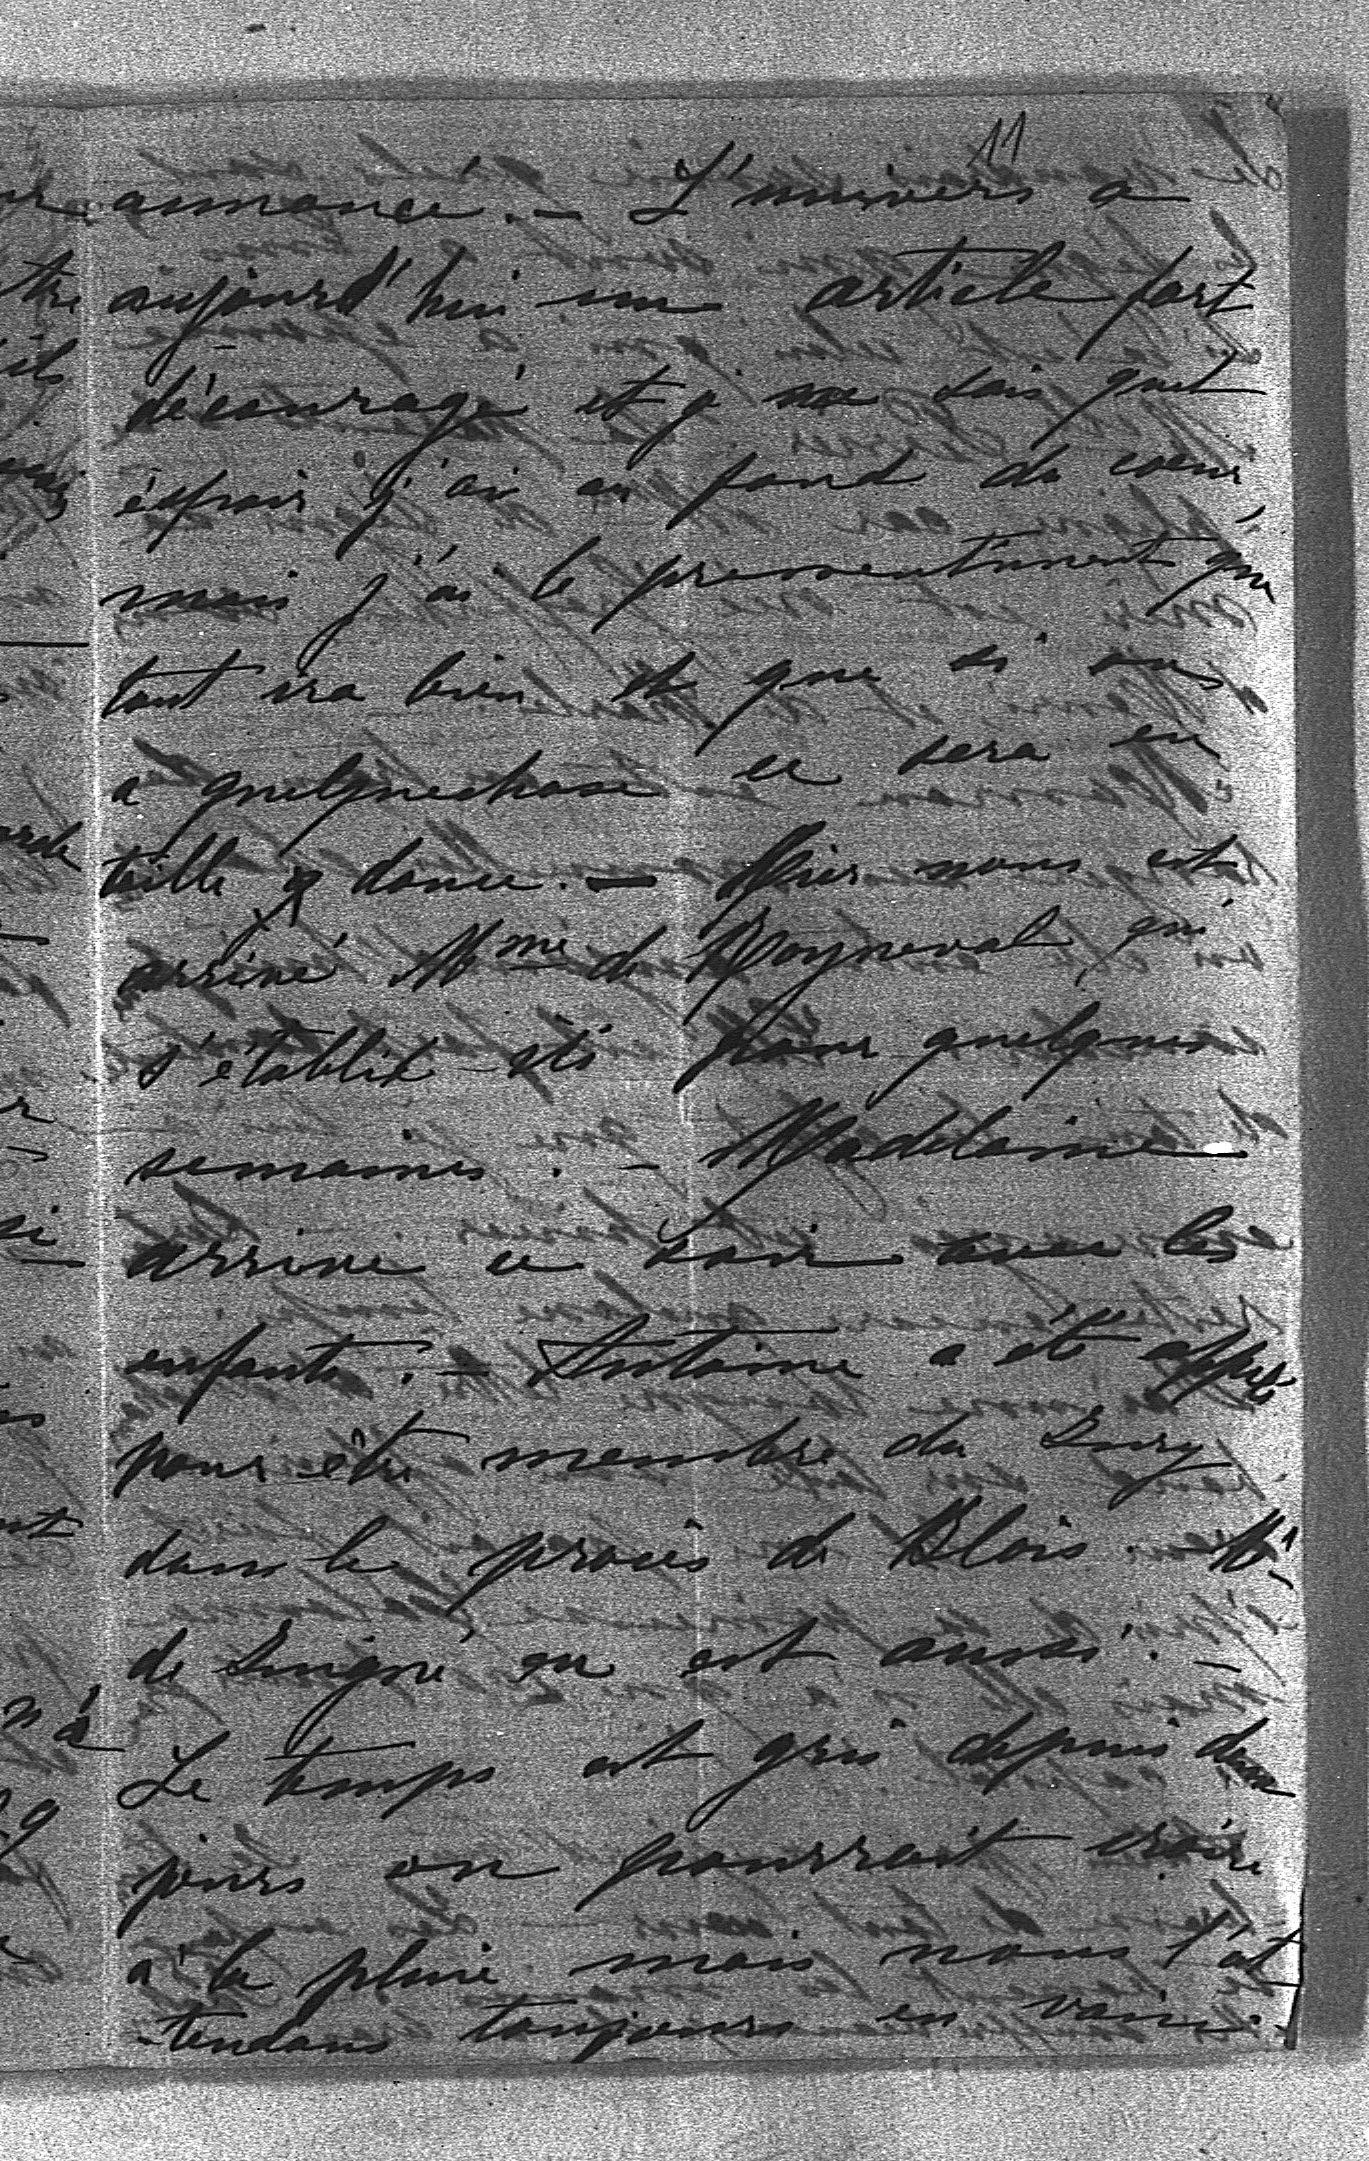 11
annoncé. – L'univers a
aujourd'hui un article fort
découragé et j' ne sais quel
éspoir j'ai au fond du coeur
mais j'ai le pressentiment que
tout ira bien et que si on
a quelquechose ce sera en
taille douce. – Hier nous est
arrivé Mme de Rayneval qui
s'établit ici pour quelques
semaines. – Madelaine
arrive ce soir avec les
enfants. – Antoine a été appelé
pour être membre du Jury
dans le procès de Blois. Mr
de en est aussi. –
Le temps est gris depuis deux
jours on pourrait croire
à la pluie mais nous l'at
-tendons toujours en vain.